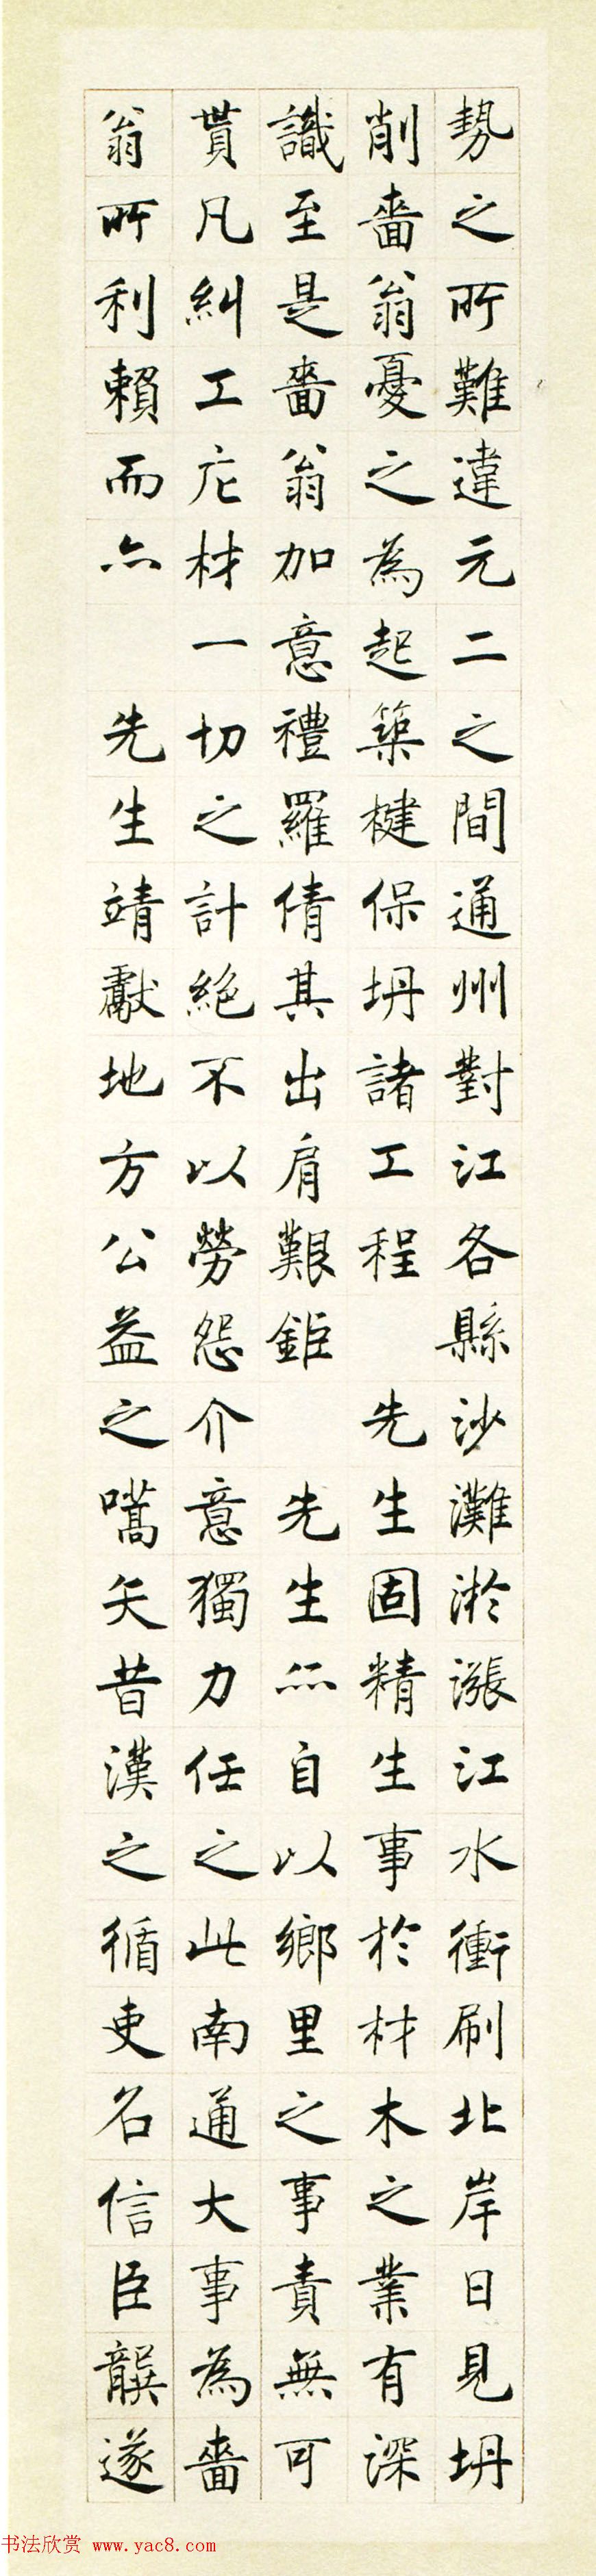 勢之所難違元二之間通州對江各縣沙灘淤漲江水衝刷北岸日見坍
削嗇翁憂之為起築楗保坍諸工程 先生固精生事於材木之業有深
識至是嗇翁加意禮羅倩其出肩艱鉅 先生亦自以鄉里之事責無可
貰凡糾工庀材一切之計絕不以勞怨介意獨力任之此南通大事為嗇
翁所利賴而亦 先生靖獻地方公益之嚆矢昔漢之循吏名信臣龔遂
书法欣赏 www.yac8.com